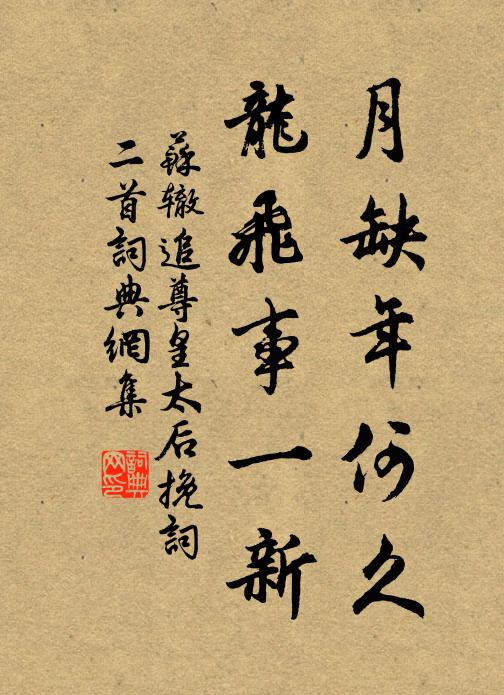 月缺年何久
龍飛事一新
蘇轍追尊皇太后挽詞
二首詞典網集
詞典
网印